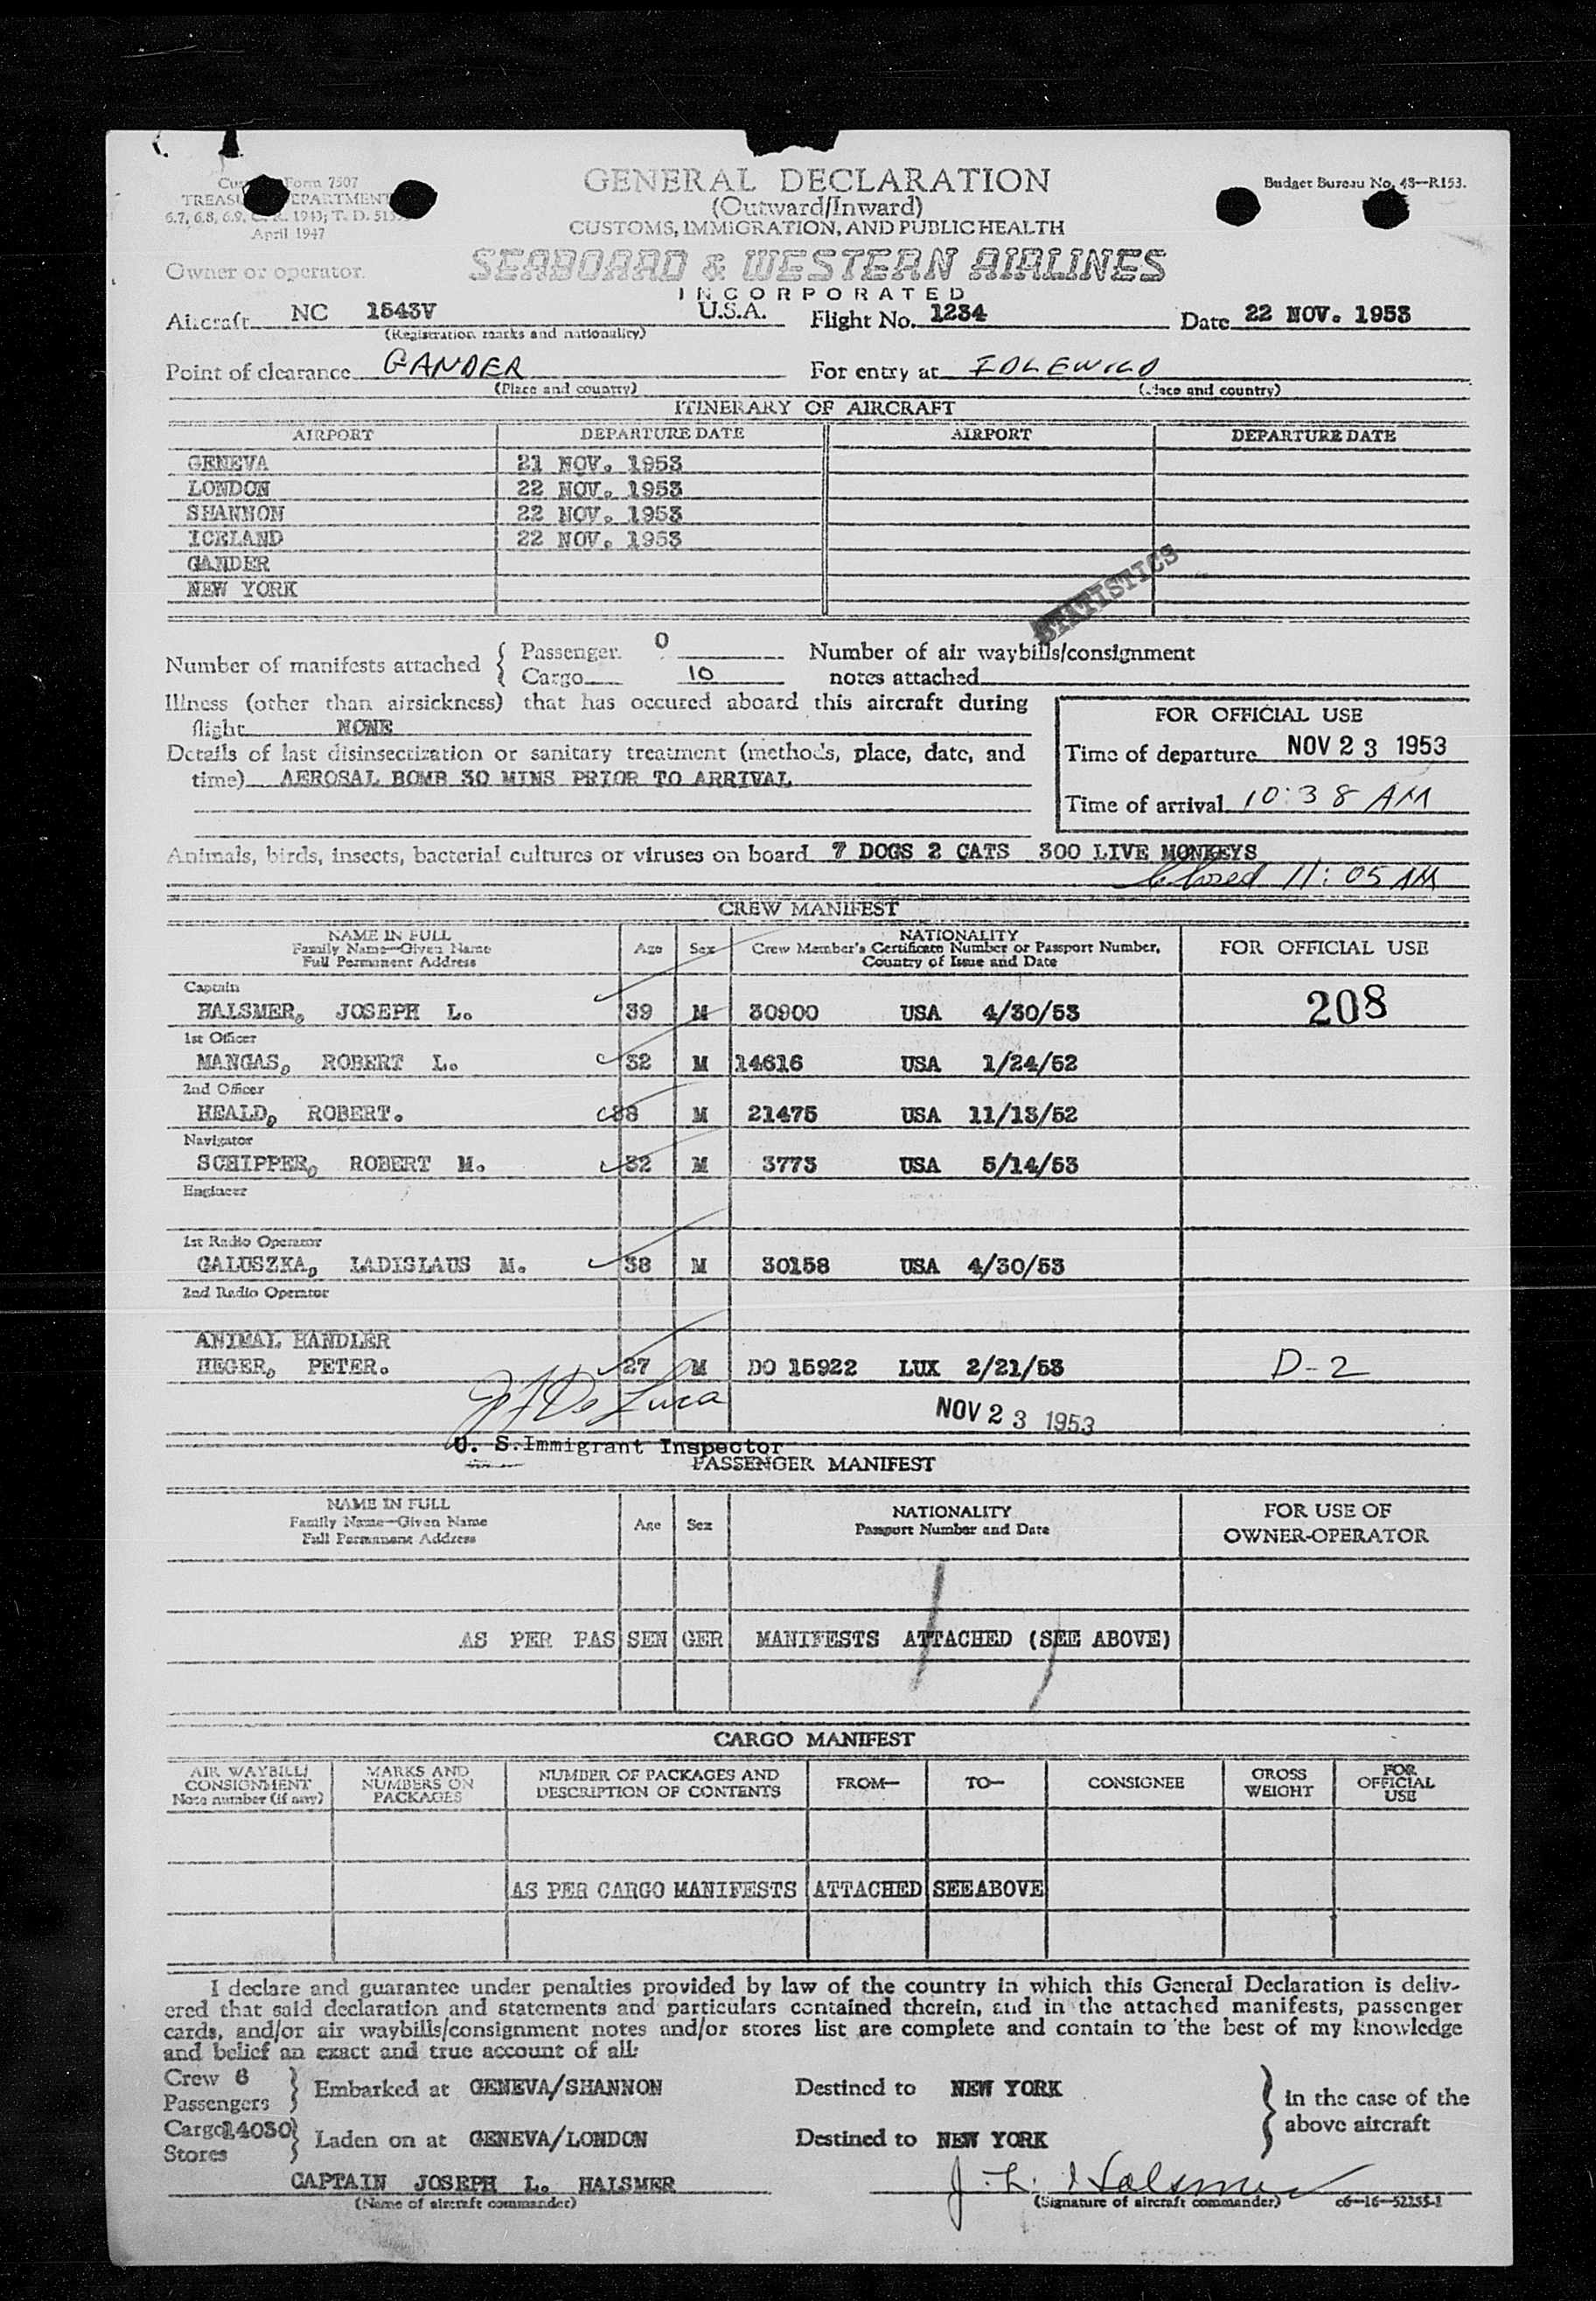 Form 7507
GENERAL DECLARATION
Budget Bureau No. 48—R153.
(Outward/Inward)
CUSTOMS, IMMIGRATION, AND PUBLIC HEALTH
April 1947
SEABOARD & WESTERN AIRLINES
INCORPORATED
Owner or operator
Aircraft NC 1543V U.S.A. Flight No. 1234 Date 22 NOV. 1953
(Registration marks and nationality)
Point of clearance GANDER For entry at IDLEWILD
(Place and country) (Place and country)
ITINERARY OF AIRCRAFT
AIRPORT DEPARTURE DATE AIRPORT DEPARTURE DATE
GENEVA 21 NOV. 1953
LONDON 22 NOV. 1953
SHANNON 22 NOV. 1953
ICELAND 22 NOV. 1953
GANDER
NEW YORK
STATISTICS
Number of manifests attached { Passenger 0
Cargo 10
Number of air waybills/consignment
notes attached
Illness (other than airsickness) that has occured aboard this aircraft during
flight NONE
Details of last disinsectization or sanitary treatment (methods, place, date, and
time) AEROSAL BOMB 30 MINS PRIOR TO ARRIVAL
FOR OFFICIAL USE
Time of departure NOV 23 1953
Time of arrival 10:38 AM
Animals, birds, insects, bacterial cultures or viruses on board 7 DOGS 2 CATS 300 LIVE MONKEYS
11:05 AM
CREW MANIFEST
NAME IN FULL
Family Name—Given Name
Full Permanent Address
Age Sex
NATIONALITY
Crew Member's Certificate Number or Passport Number,
Country of Issue and Date
FOR OFFICIAL USE
Captain
HALSMER, JOSEPH L. 39 M 30900 USA 4/30/53 208
1st Officer
MANGAS, ROBERT L. 32 M 14616 USA 1/24/52
2nd Officer
HEALD, ROBERT. 38 M 21475 USA 11/13/52
Navigator
SCHIPPER, ROBERT M. 32 M 3773 USA 5/14/53
Engineer
1st Radio Operator
GALUSZKA, LADISLAUS M. 38 M 30158 USA 4/30/53
2nd Radio Operator
ANIMAL HANDLER
HEGER, PETER. 27 M DO 15922 LUX 2/21/53 D-2
De Luca
NOV 23 1953
U. S. Immigrant Inspector
PASSENGER MANIFEST
NAME IN FULL
Family Name—Given Name
Full Permanent Address
Age Sex
NATIONALITY
Passport Number and Date
FOR USE OF
OWNER-OPERATOR
AS PER PAS SEN GER MANIFESTS ATTACHED (SEE ABOVE)
CARGO MANIFEST
AIR WAYBILL/
CONSIGNMENT
Note number (if any)
MARKS AND
NUMBERS ON
PACKAGES
NUMBER OF PACKAGES AND
DESCRIPTION OF CONTENTS
FROM— TO— CONSIGNEE
GROSS
WEIGHT
FOR
OFFICIAL
USE
AS PER CARGO MANIFESTS ATTACHED SEE ABOVE
I declare and guarantee under penalties provided by law of the country in which this General Declaration is deliv-
ered that said declaration and statements and particulars contained therein, and in the attached manifests, passenger
cards, and/or air waybills/consignment notes and/or stores list are complete and contain to the best of my knowledge
and belief an exact and true account of all:
Crew 6
Passengers
} Embarked at GENEVA/SHANNON Destined to NEW YORK
Cargo 14030
Stores
} Laden on at GENEVA/LONDON Destined to NEW YORK
} in the case of the
above aircraft
CAPTAIN JOSEPH L. HALSMER J. L. Halsmer
(Name of aircraft commander) (Signature of aircraft commander) c6—16—52255-1